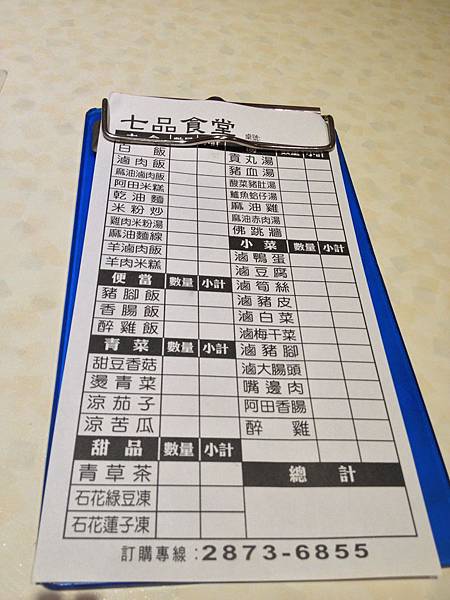 七品食堂
桌號
白飯
滷肉飯
麻油滷肉飯
阿田米糕
乾油麵
米粉炒
雞肉米粉湯
麻油麵線
羊滷肉飯
羊肉米糕
便當 數量 小計
豬腳飯
香腸飯
醉雞飯
青菜 數量 小計
甜豆香菇
燙青菜
涼茄子
涼苦瓜
甜品 數量 小計
青草茶
石花綠豆凍
石花蓮子凍
數量 小計
貢丸湯
豬血湯
酸菜豬肚湯
鱸魚蛤仔湯
麻油雞
麻油赤肉湯
佛跳牆
小菜 數量 小計
滷鴨蛋
滷豆腐
滷筍絲
滷豬皮
滷白菜
滷梅干菜
滷豬腳
滷大腸頭
嘴邊肉
阿田香腸
醉雞
總計
訂購專線：2873-6855